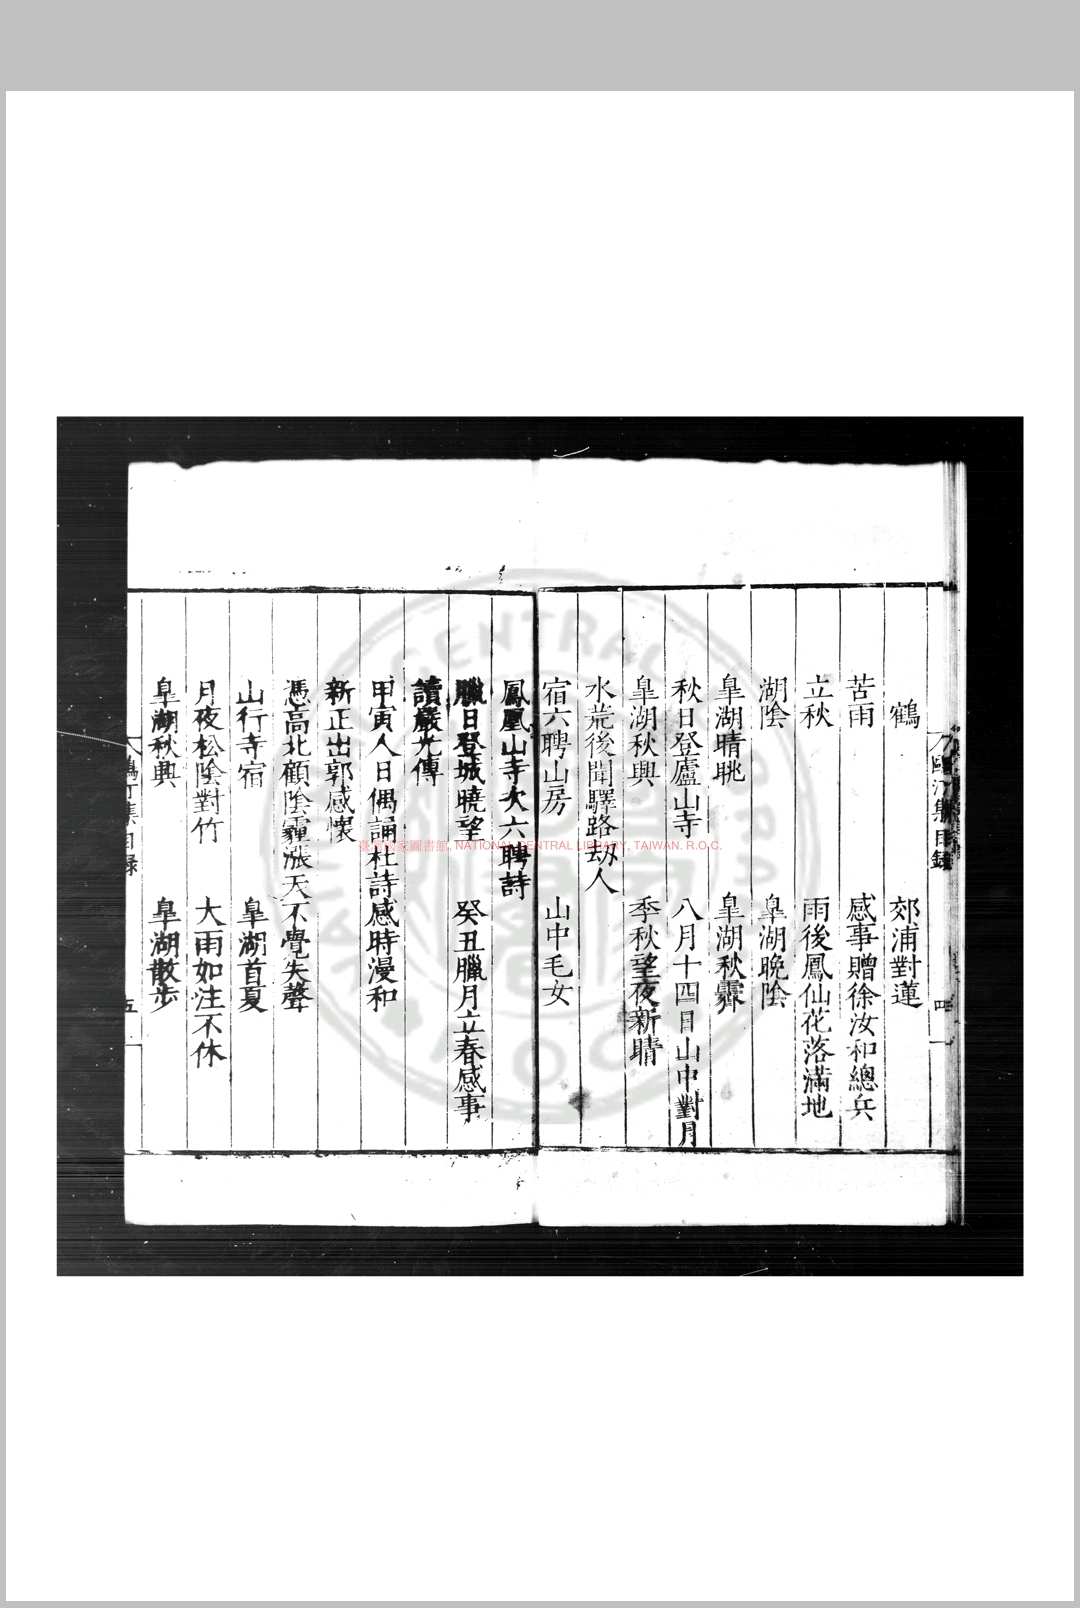 鶴　郊浦對蓮
苦雨　感事贈徐汝和總兵
立秋　雨後鳳仙花落滿地
湖陰　皐湖晚陰
皐湖晴眺　皐湖秋霽
秋日登廬山寺　八月十四日山中對月
皐湖秋興　季秋望夜新晴
水荒後聞驛路劫人
宿六聘山房　山中毛女
鳳凰山寺次六聘詩
臘日登城曉望　癸丑臘月立春感事
讀嚴光傳
甲寅人日偶誦杜詩感時漫和
新正出郭感懷
憑高北顧陰霾漲天不覺失聲
山行寺宿　皐湖首夏
月夜松陰對竹　大雨如注不休
皐湖秋興　皐湖散步
集目錄　四
集目録　五
臺灣國家圖書館, NATIONAL CENTRAL LIBRARY, TAIWAN. R.O.C.